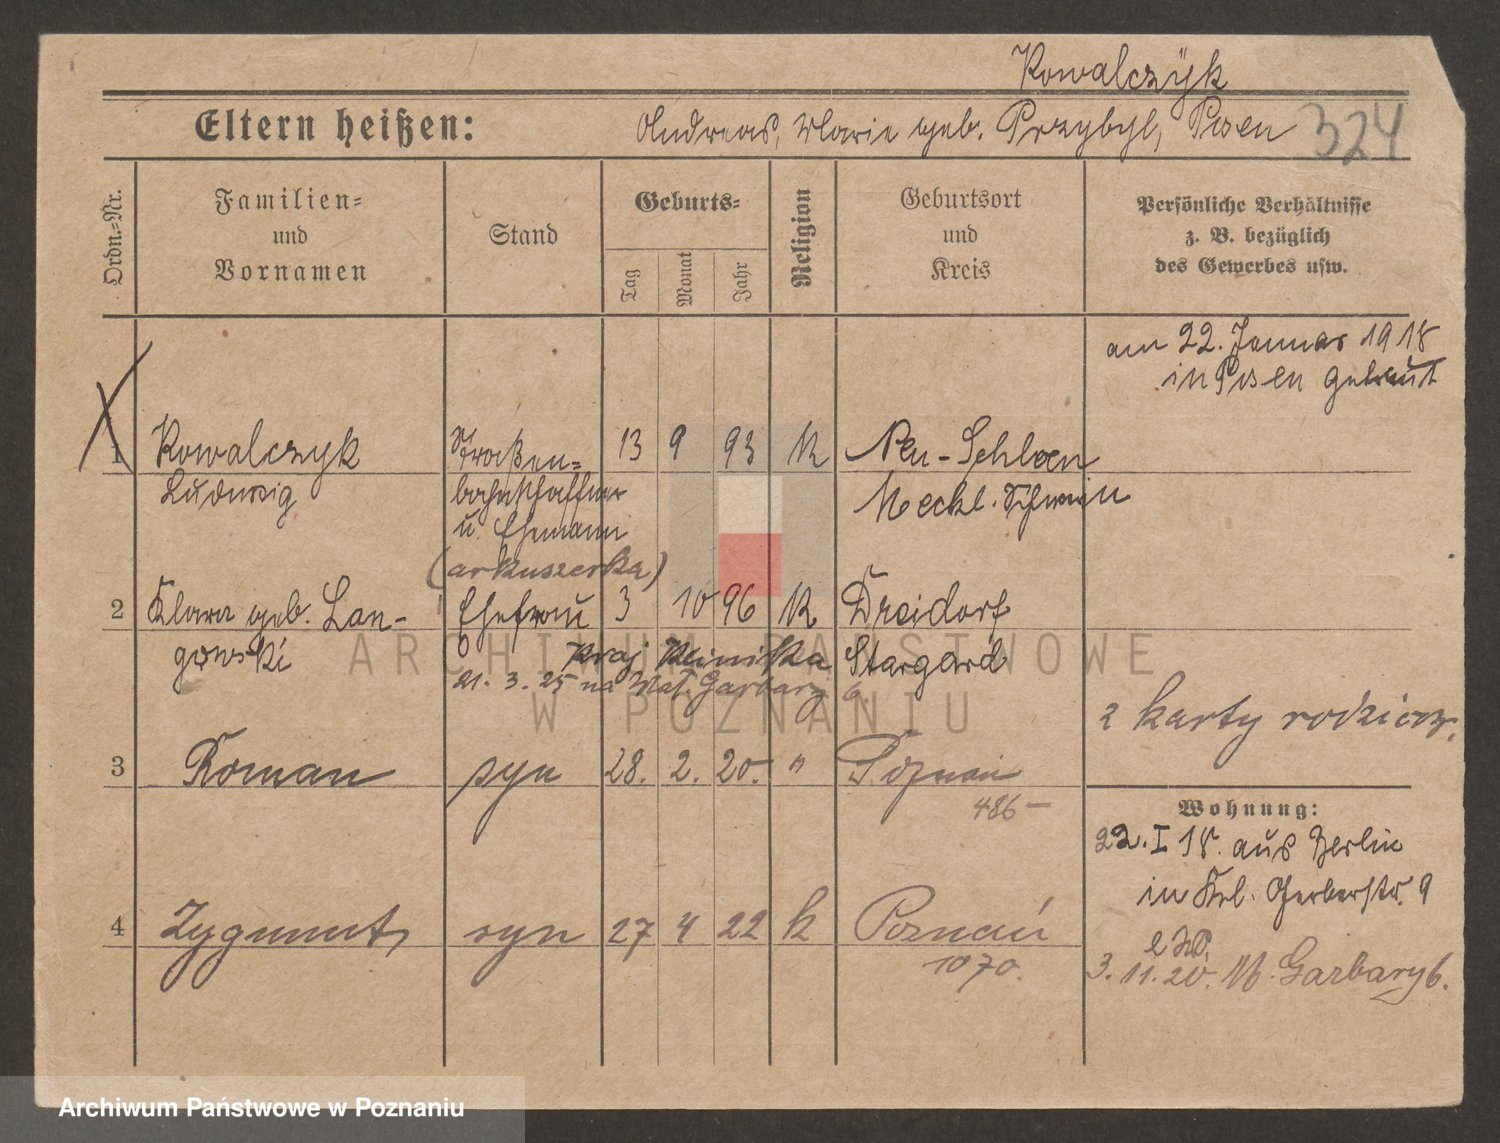 Kowalczÿk
Eltern heißen: Andreas, Marie geb. Przybyl, Posen 324
Ordn.=Nr.
Familien=
und
Vornamen
Stand
Geburts=
Tag
Monat
Jahr
Religion
Geburtsort
und
Kreis
Persönliche Verhältnisse
z. B. bezüglich
des Gewerbes usw.
am 22. Januar 1918
in Posen getraut
1 Kowalczyk Straßen= 13 9 93 K Neu-Schloen
Ludwig bahnschaffner Meckl. Schwerin
u. Ehemann
(arkuszerka)
2 Klara geb. Lan- Ehefrau 3 10 96 K Dreidorf
gowski Kraj Klinika Stargard
21. 3. 25 na Garbary 6.
2 karty rodzicz.
3 Roman syn 28. 2. 20. " Poznań
486-
Wohnung:
22. I 18. aus Berlin
in Gerberstr. 9
4 Zygmunt syn 27 4 22 k Poznań
1070.
3. 11. 20. Garbary 6.
ARCHIWUM PAŃSTWOWE
W POZNANIU
Archiwum Państwowe w Poznaniu